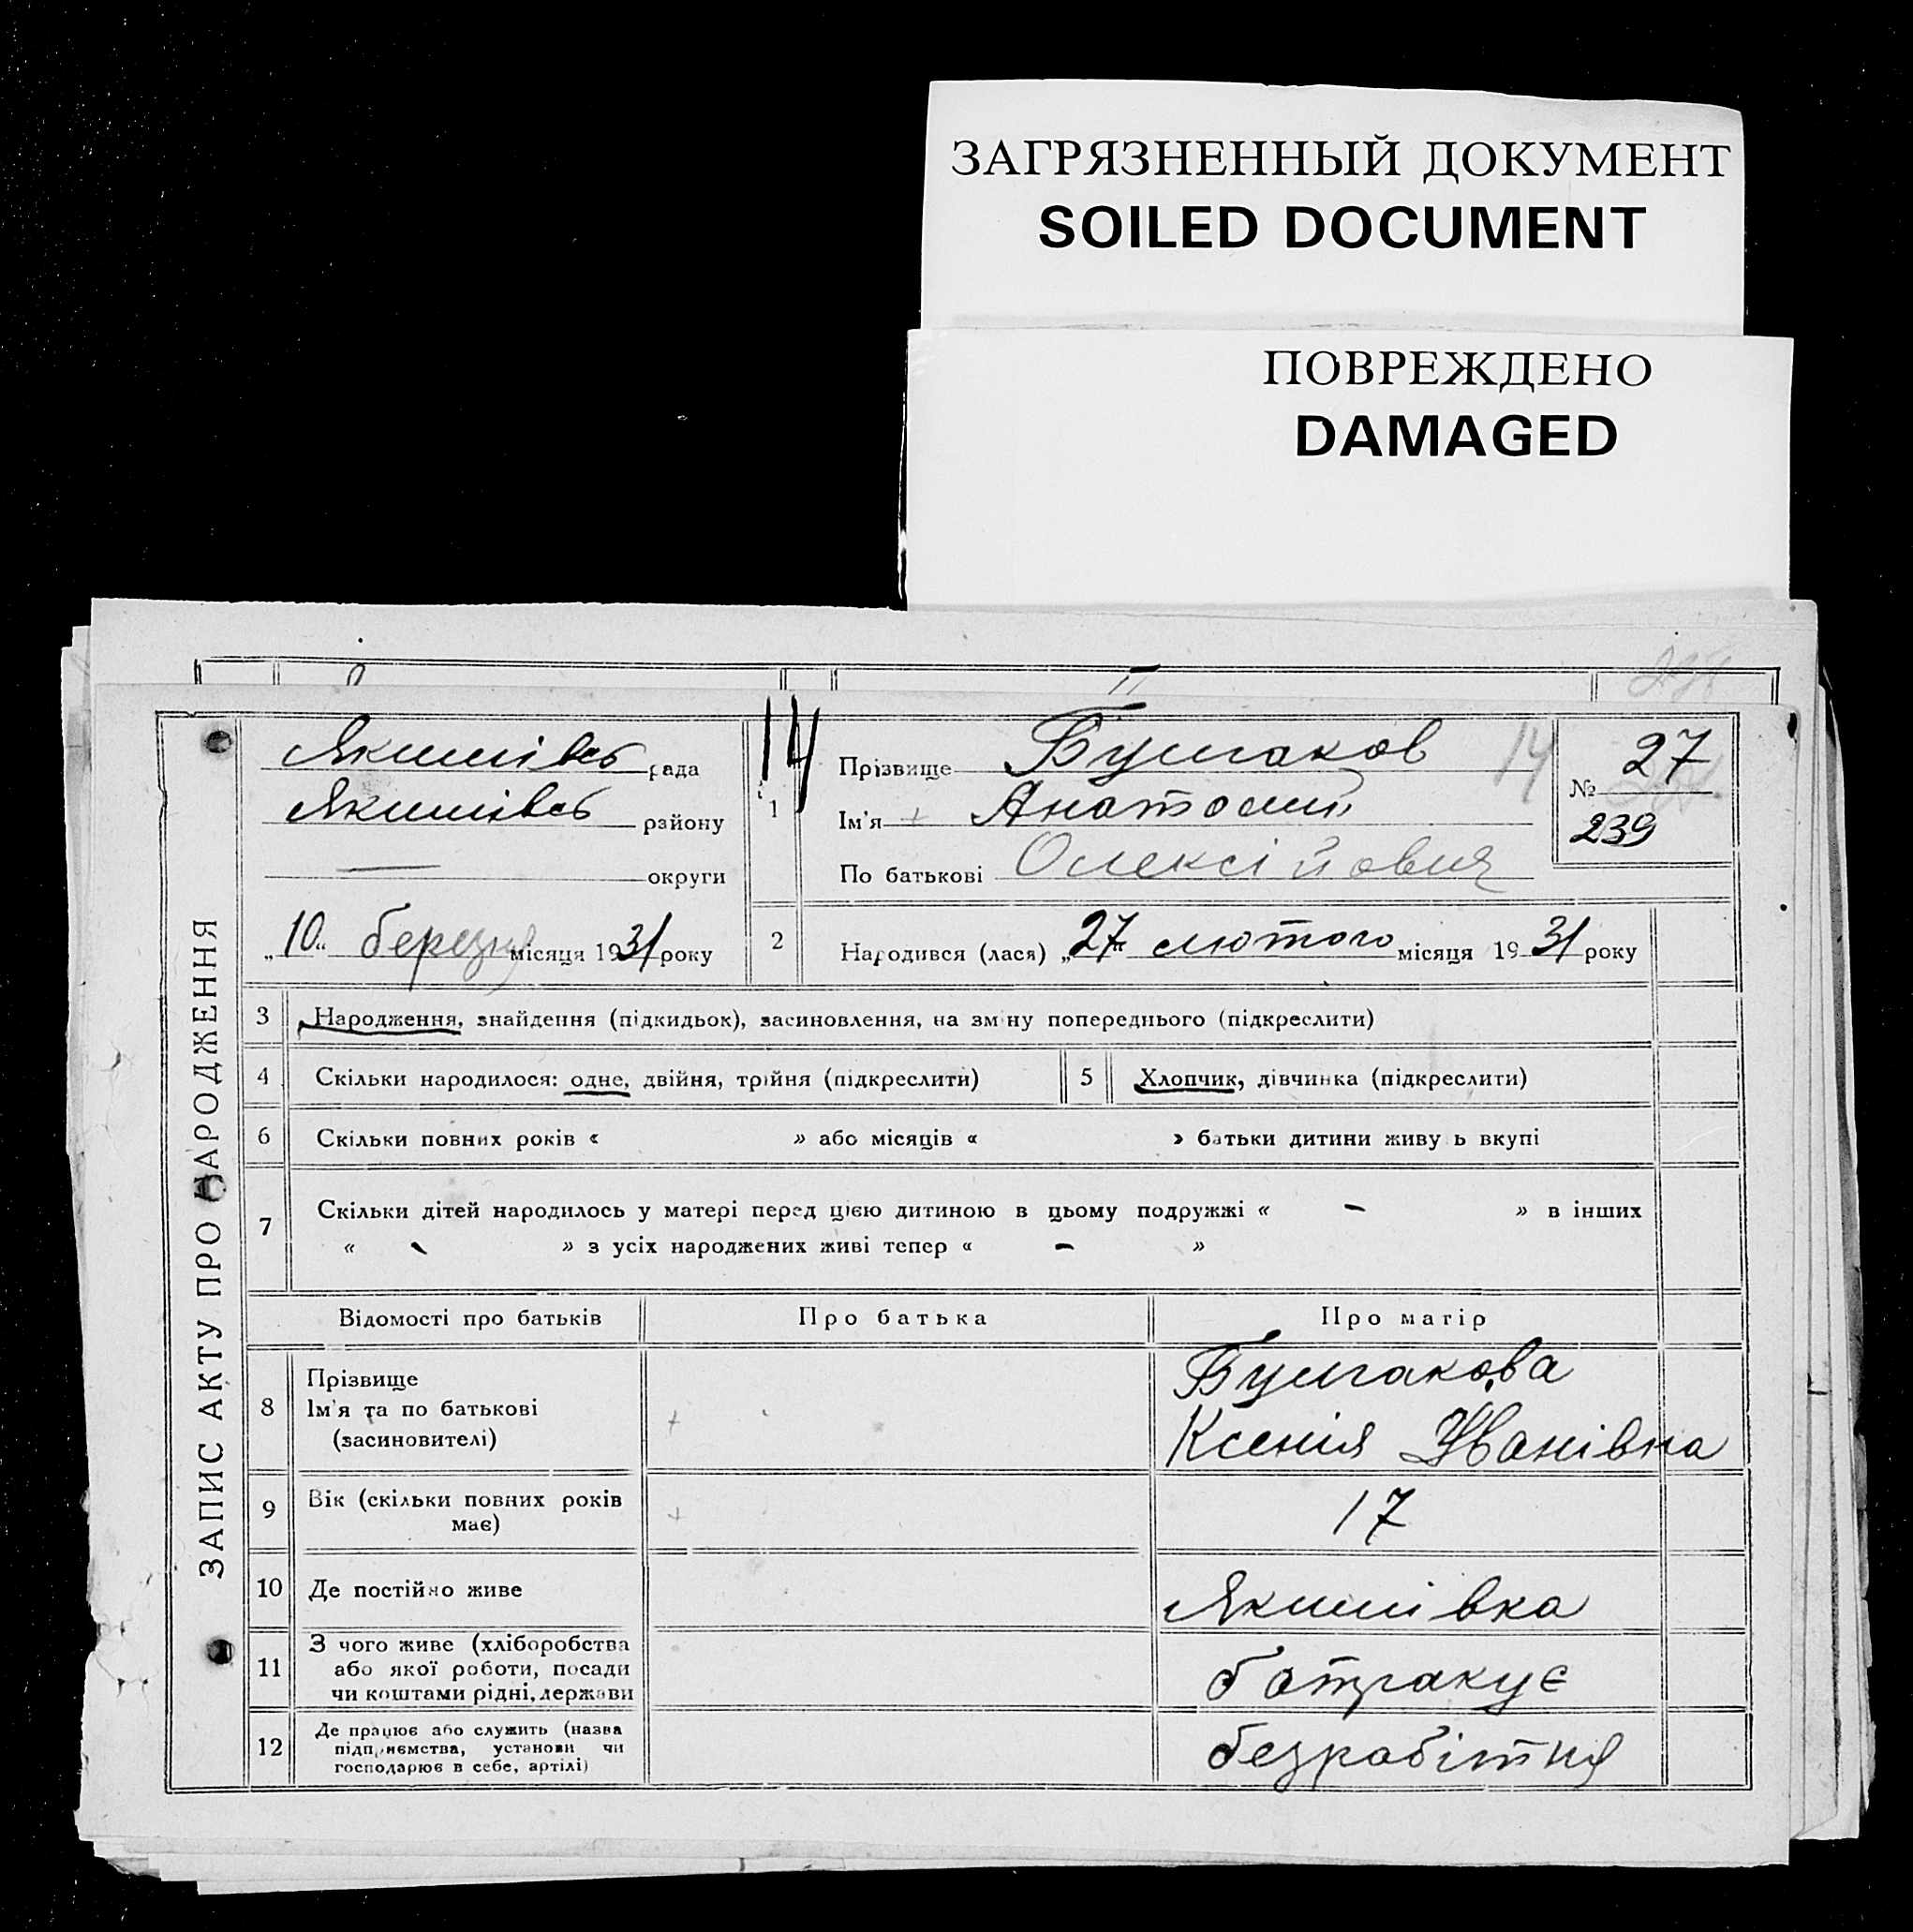 ЗАГРЯЗНЕННЫЙ ДОКУМЕНТ
SOILED DOCUMENT
ПОВРЕЖДЕНО
DAMAGED
ЗАПИС АКТУ ПРО НАРОДЖЕННЯ
Якимівсь рада
Якимівсь району
— округи
„10“ березня місяця 1931 року
14
1
Прізвище Булгаков 14
Ім'я Анатолий
По батькові Олексійович
№ 27
239
2 Народився (лася) „27“ лютого місяця 1931 року
3 Народження, знайдення (підкидьок), засиновлення, на зміну попереднього (підкреслити)
4 Скільки народилося: одне, двійня, трійня (підкреслити)
5 Хлопчик, дівчинка (підкреслити)
6 Скільки повних років « » або місяців « » батьки дитини живуть вкупі
7 Скільки дітей народилось у матері перед цією дитиною в цьому подружжі « – » в інших
« - » з усіх народжених живі тепер « – »
Відомості про батьків Про батька Про матір
8 Прізвище
Ім'я та по батькові
(засиновителі)
Булгакова
Ксенія Іванівна
9 Вік (скільки повних років
має)
17
10 Де постійно живе Якимівка
11 З чого живе (хліборобства
або якої роботи, посади
чи коштами рідні, держави
батракує
12 Де працює або служить (назва
підприємства, установи чи
господарює в себе, артілі)
безробітня